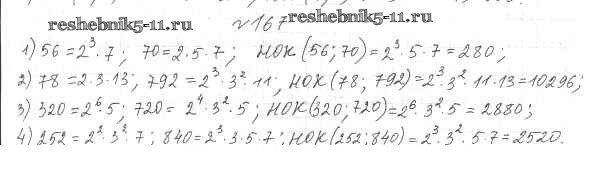 reshebnik5-11.ru №167 reshebnik5-11.ru
1) 56=2³·7; 70=2·5·7; НОК(56;70)=2³·5·7=280;
2) 78=2·3·13; 792=2³·3²·11; НОК(78; 792)=2³·3²·11·13=10296;
3) 320=2⁶·5; 720=2⁴·3²·5; НОК(320;720)=2⁶·3²·5=2880;
4) 252=2²·3²·7; 840=2³·3·5·7; НОК(252;840)=2³·3²·5·7=2520.